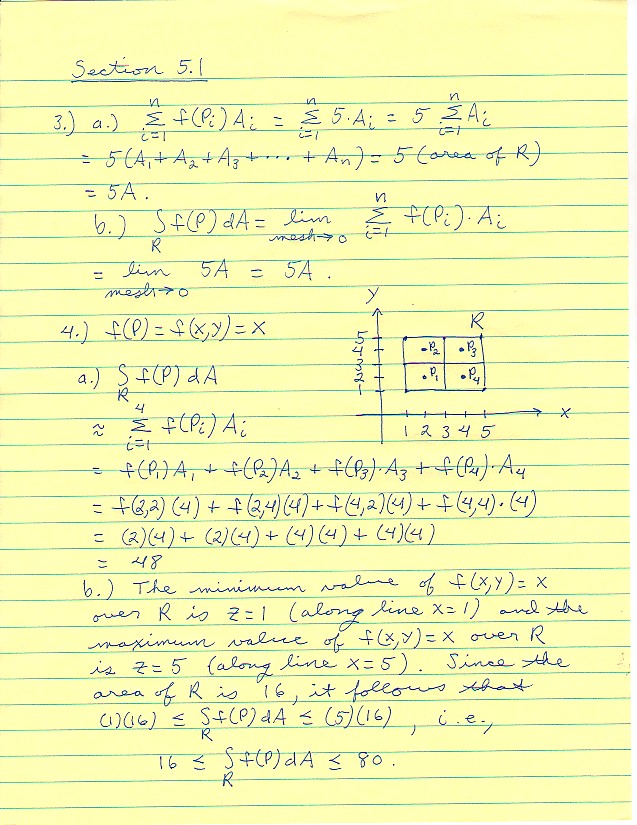 Section 5.1
3.) a.) n Σ i=1 f(Pi) Ai = n Σ i=1 5·Ai = 5 n Σ i=1 Ai
= 5(A1 + A2 + A3 + ···· + An) = 5 (area of R)
= 5A.
b.) ∫R f(P) dA = lim mesh→0 n Σ i=1 f(Pi)·Ai
= lim mesh→0 5A = 5A.
4.) f(P) = f(x,y) = x
y
R
5
4
3
2
1
P2 P3
P1 P4
1 2 3 4 5
x
a.) ∫R f(P) dA
≈ 4 Σ i=1 f(Pi) Ai
= f(P1) A1 + f(P2) A2 + f(P3)·A3 + f(P4)·A4
= f(2,2)(4) + f(2,4)(4) + f(4,2)(4) + f(4,4)·(4)
= (2)(4) + (2)(4) + (4)(4) + (4)(4)
= 48
b.) The minimum value of f(x,y) = x
over R is z=1 (along line x=1) and the
maximum value of f(x,y) = x over R
is z=5 (along line x=5). Since the
area of R is 16, it follows that
(1)(16) ≤ ∫R f(P) dA ≤ (5)(16), i.e.,
16 ≤ ∫R f(P) dA ≤ 80.